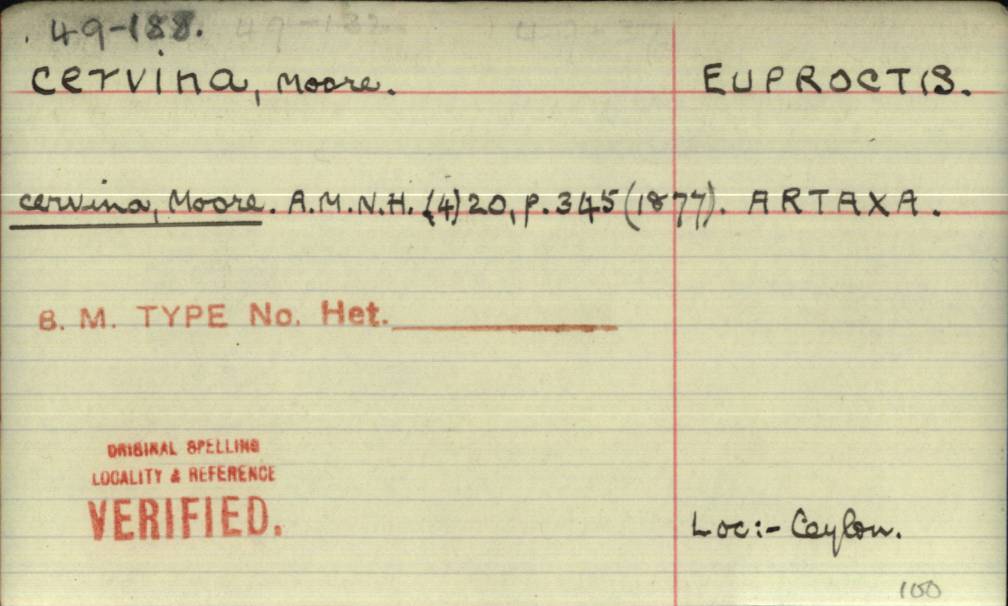 49-188.
cervina, Moore. EUPROCTIS.
cervina, Moore. A.M.N.H. (4) 20, p. 345 (1877). ARTAXA.
B. M. TYPE No. Het.
ORIGINAL SPELLING
LOCALITY & REFERENCE
VERIFIED.
Loc:- Ceylon.
100